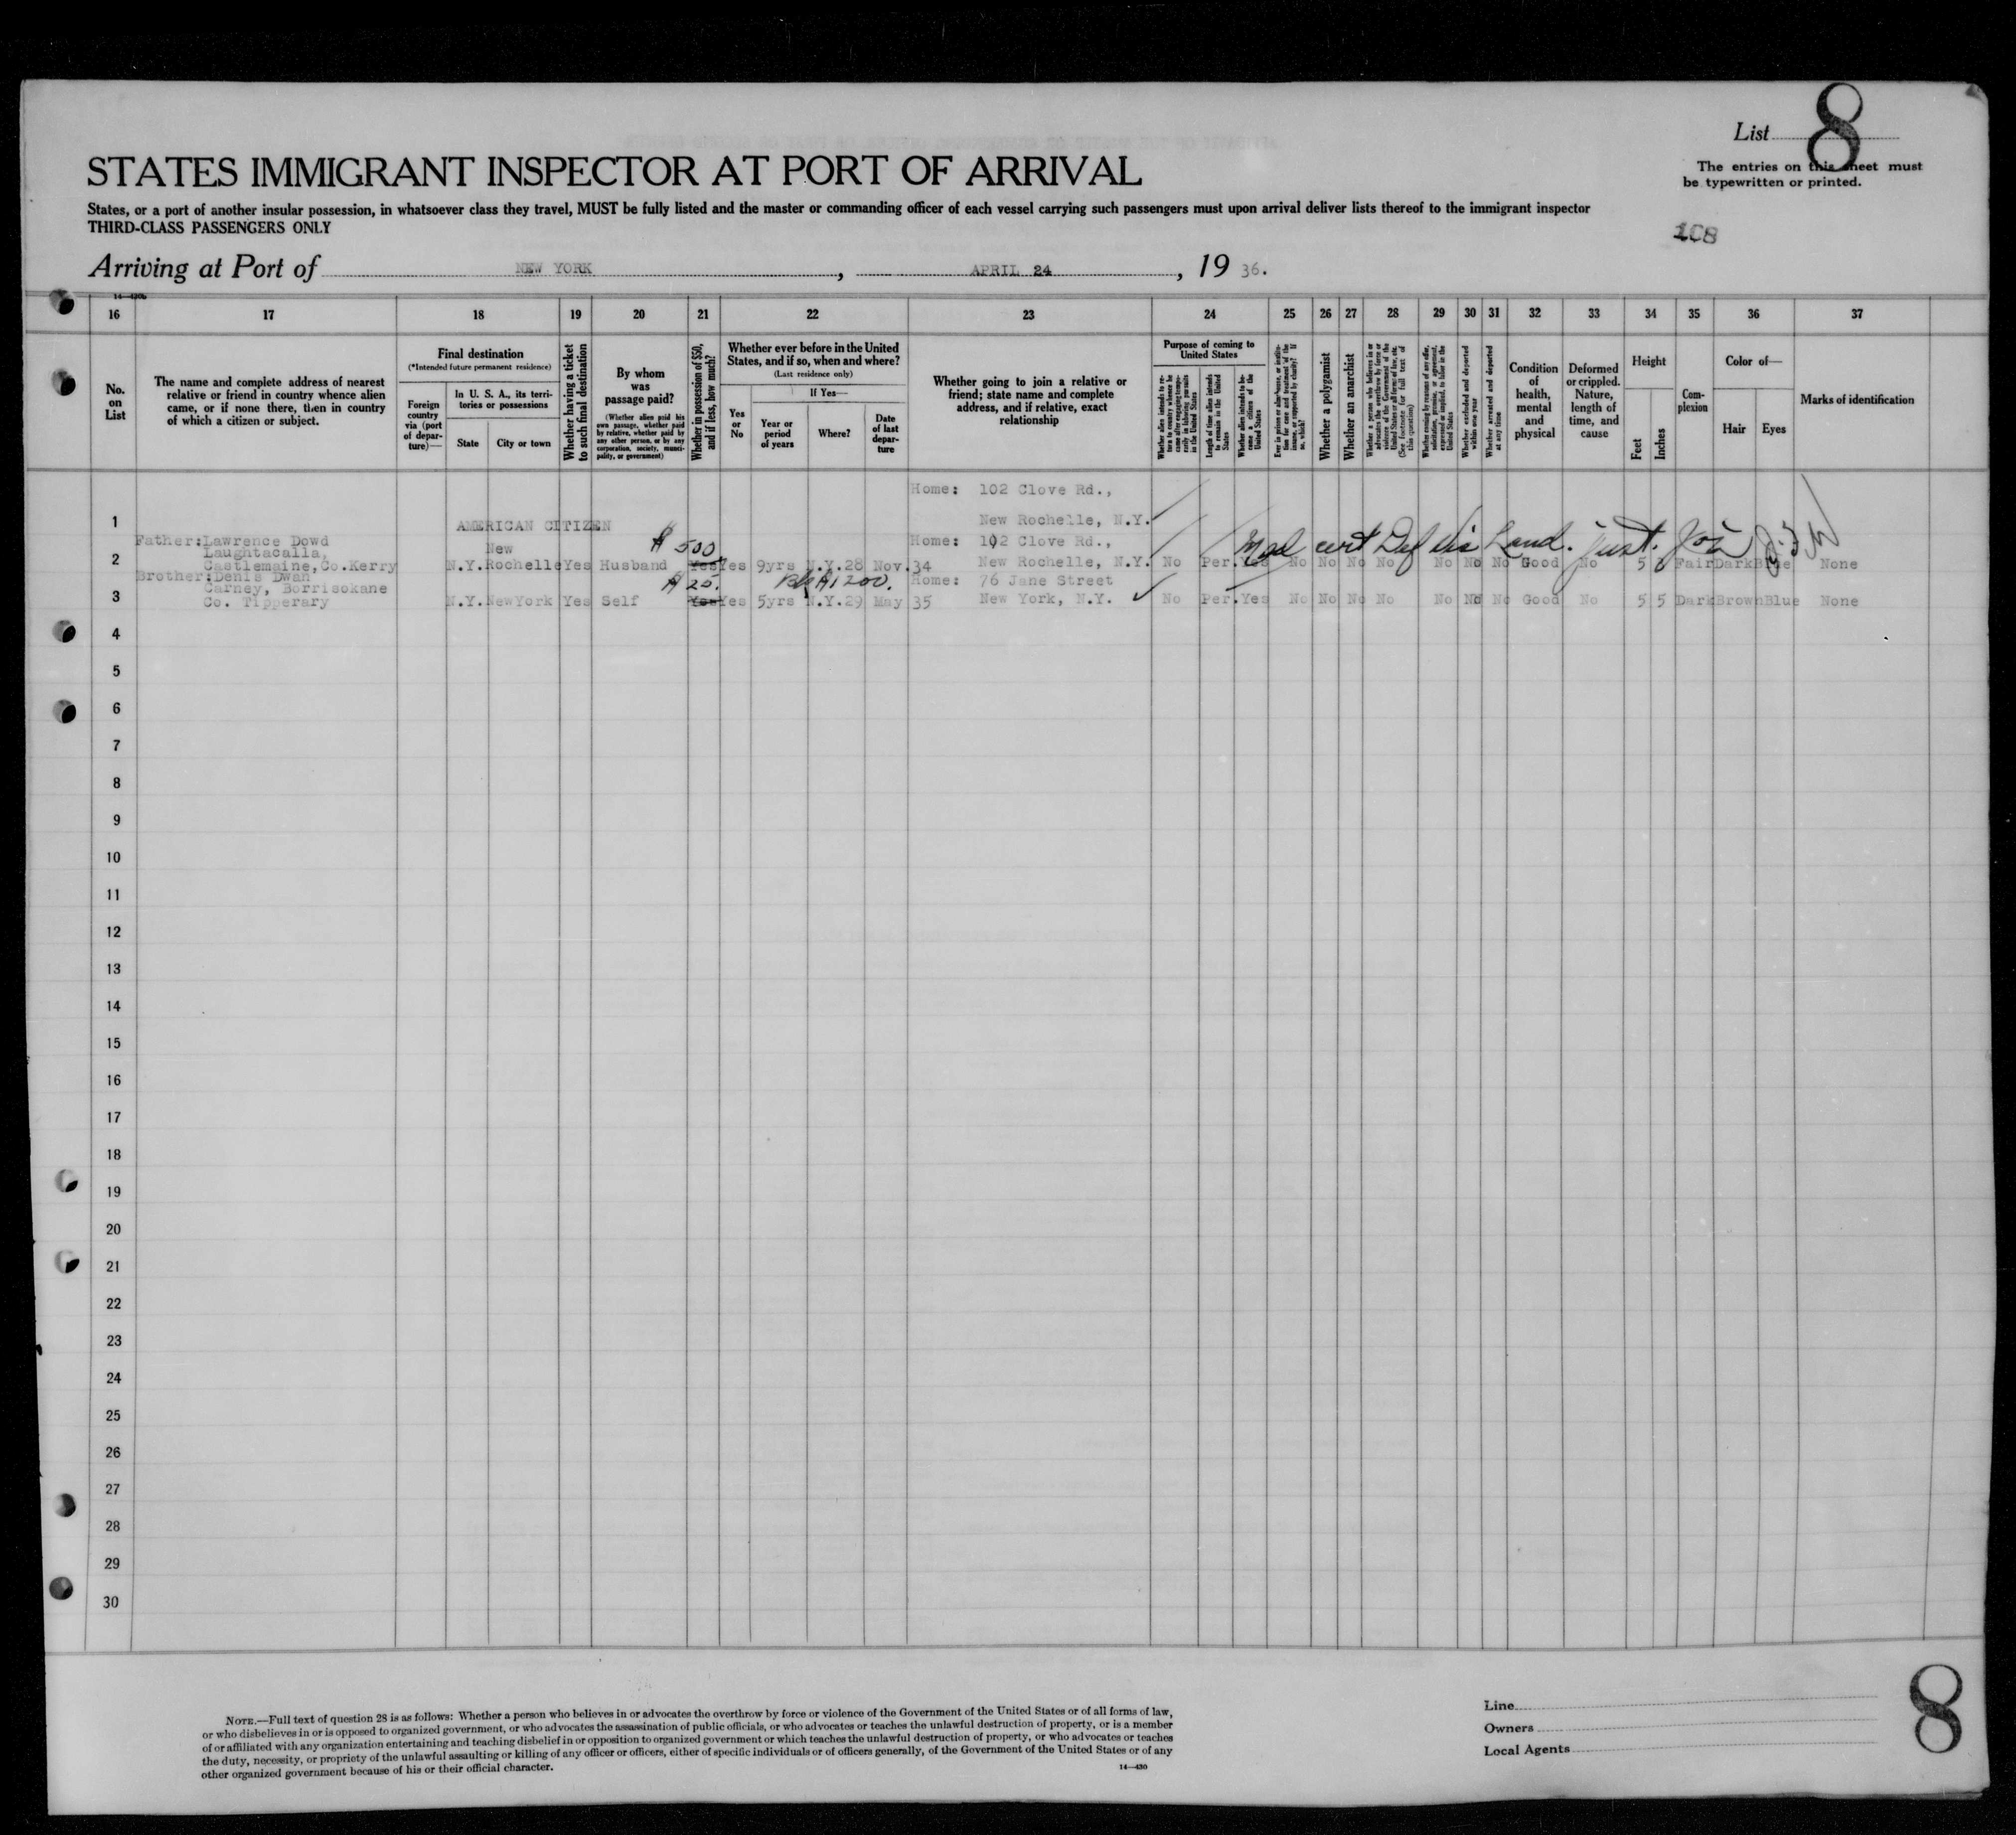 List 8
The entries on this sheet must
be typewritten or printed.
STATES IMMIGRANT INSPECTOR AT PORT OF ARRIVAL
States, or a port of another insular possession, in whatsoever class they travel, MUST be fully listed and the master or commanding officer of each vessel carrying such passengers must upon arrival deliver lists thereof to the immigrant inspector
THIRD-CLASS PASSENGERS ONLY
108
Arriving at Port of NEW YORK, APRIL 24, 19 36.
16 17 18 19 20 21 22 23 24 25 26 27 28 29 30 31 32 33 34 35 36 37
No. on List
The name and complete address of nearest
relative or friend in country whence alien
came, or if none there, then in country
of which a citizen or subject.
Final destination
(*Intended future permanent residence)
Foreign country via (port of departure)—
In U. S. A., its territories or possessions
State
City or town
Whether having a ticket to such final destination
By whom was passage paid?
(Whether alien paid his own passage, whether paid by relative, whether paid by any other person, or by any corporation, society, municipality, or government)
Whether in possession of $50, and if less, how much?
Whether ever before in the United States, and if so, when and where?
(Last residence only)
Yes or No
If Yes—
Year or period of years
Where?
Date of last departure
Whether going to join a relative or
friend; state name and complete
address, and if relative, exact
relationship
Purpose of coming to United States
Whether alien intends to return to country whence he came after engaging temporarily in laboring pursuits in the United States
Length of time alien intends to remain in the United States
Whether alien intends to become a citizen of the United States
Whether a polygamist
Whether an anarchist
Whether excluded and deported within one year
Whether arrested and deported at any time
Condition of health, mental and physical
Deformed or crippled. Nature, length of time, and cause
Height
Feet
Inches
Complexion
Color of—
Hair
Eyes
Marks of identification
1 AMERICAN CITIZEN Home: 102 Clove Rd.,
New Rochelle, N.Y.
Father:Lawrence Dowd
Laughtacalla,
Castlemaine,Co.Kerry
2 N.Y. New Rochelle Yes Husband $500 Yes Yes 9yrs N.Y. 28 Nov.34 Home: 102 Clove Rd.,
New Rochelle, N.Y. No Per. Yes No No No No No No No Good No 5 Fair Dark Blue None
Brother:Denis Dwan
Carney, Borrisokane
Co. Tipperary
3 N.Y. NewYork Yes Self $25. Yes Yes 5yrs N.Y. 29 May 35 Home: 76 Jane Street
New York, N.Y. No Per. Yes No No No No No No No Good No 5 5 Dark Brown Blue None
4
5
6
7
8
9
10
11
12
13
14
15
16
17
18
19
20
21
22
23
24
25
26
27
28
29
30
NOTE.—Full text of question 28 is as follows: Whether a person who believes in or advocates the overthrow by force or violence of the Government of the United States or of all forms of law,
or who disbelieves in or is opposed to organized government, or who advocates the assassination of public officials, or who advocates or teaches the unlawful destruction of property, or is a member
of or affiliated with any organization entertaining and teaching disbelief in or opposition to organized government or which teaches the unlawful destruction of property, or who advocates or teaches
the duty, necessity, or propriety of the unlawful assaulting or killing of any officer or officers, either of specific individuals or of officers generally, of the Government of the United States or of any
other organized government because of his or their official character.
14—430
Line
Owners
Local Agents
8